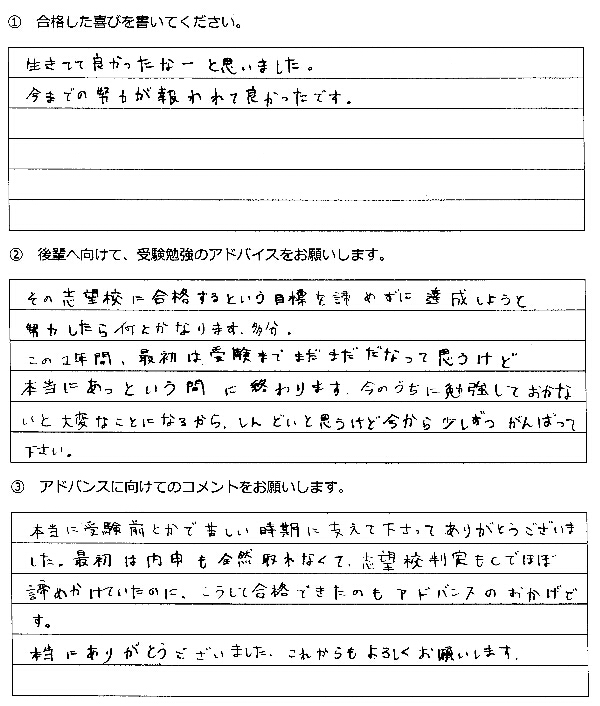 ① 合格した喜びを書いてください。
生きてて良かったなーと思いました。
今までの努力が報われて良かったです。
② 後輩へ向けて、受験勉強のアドバイスをお願いします。
その志望校に合格するという目標を諦めずに達成しようと
努力したら何とかなります、多分。
この1年間、最初は受験までまだまだだなって思うけど
本当にあっという間に終わります。今のうちに勉強しておかな
いと大変なことになるから、しんどいと思うけど今から少しずつがんばって
下さい。
③ アドバンスに向けてのコメントをお願いします。
本当に受験前とかで苦しい時期に支えて下さってありがとうございま
した。最初は内申も全然取れなくて、志望校判定もCでほぼ
諦めかけていたのに、こうして合格できたのもアドバンスのおかげで
す。
本当にありがとうございました。これからもよろしくお願いします。